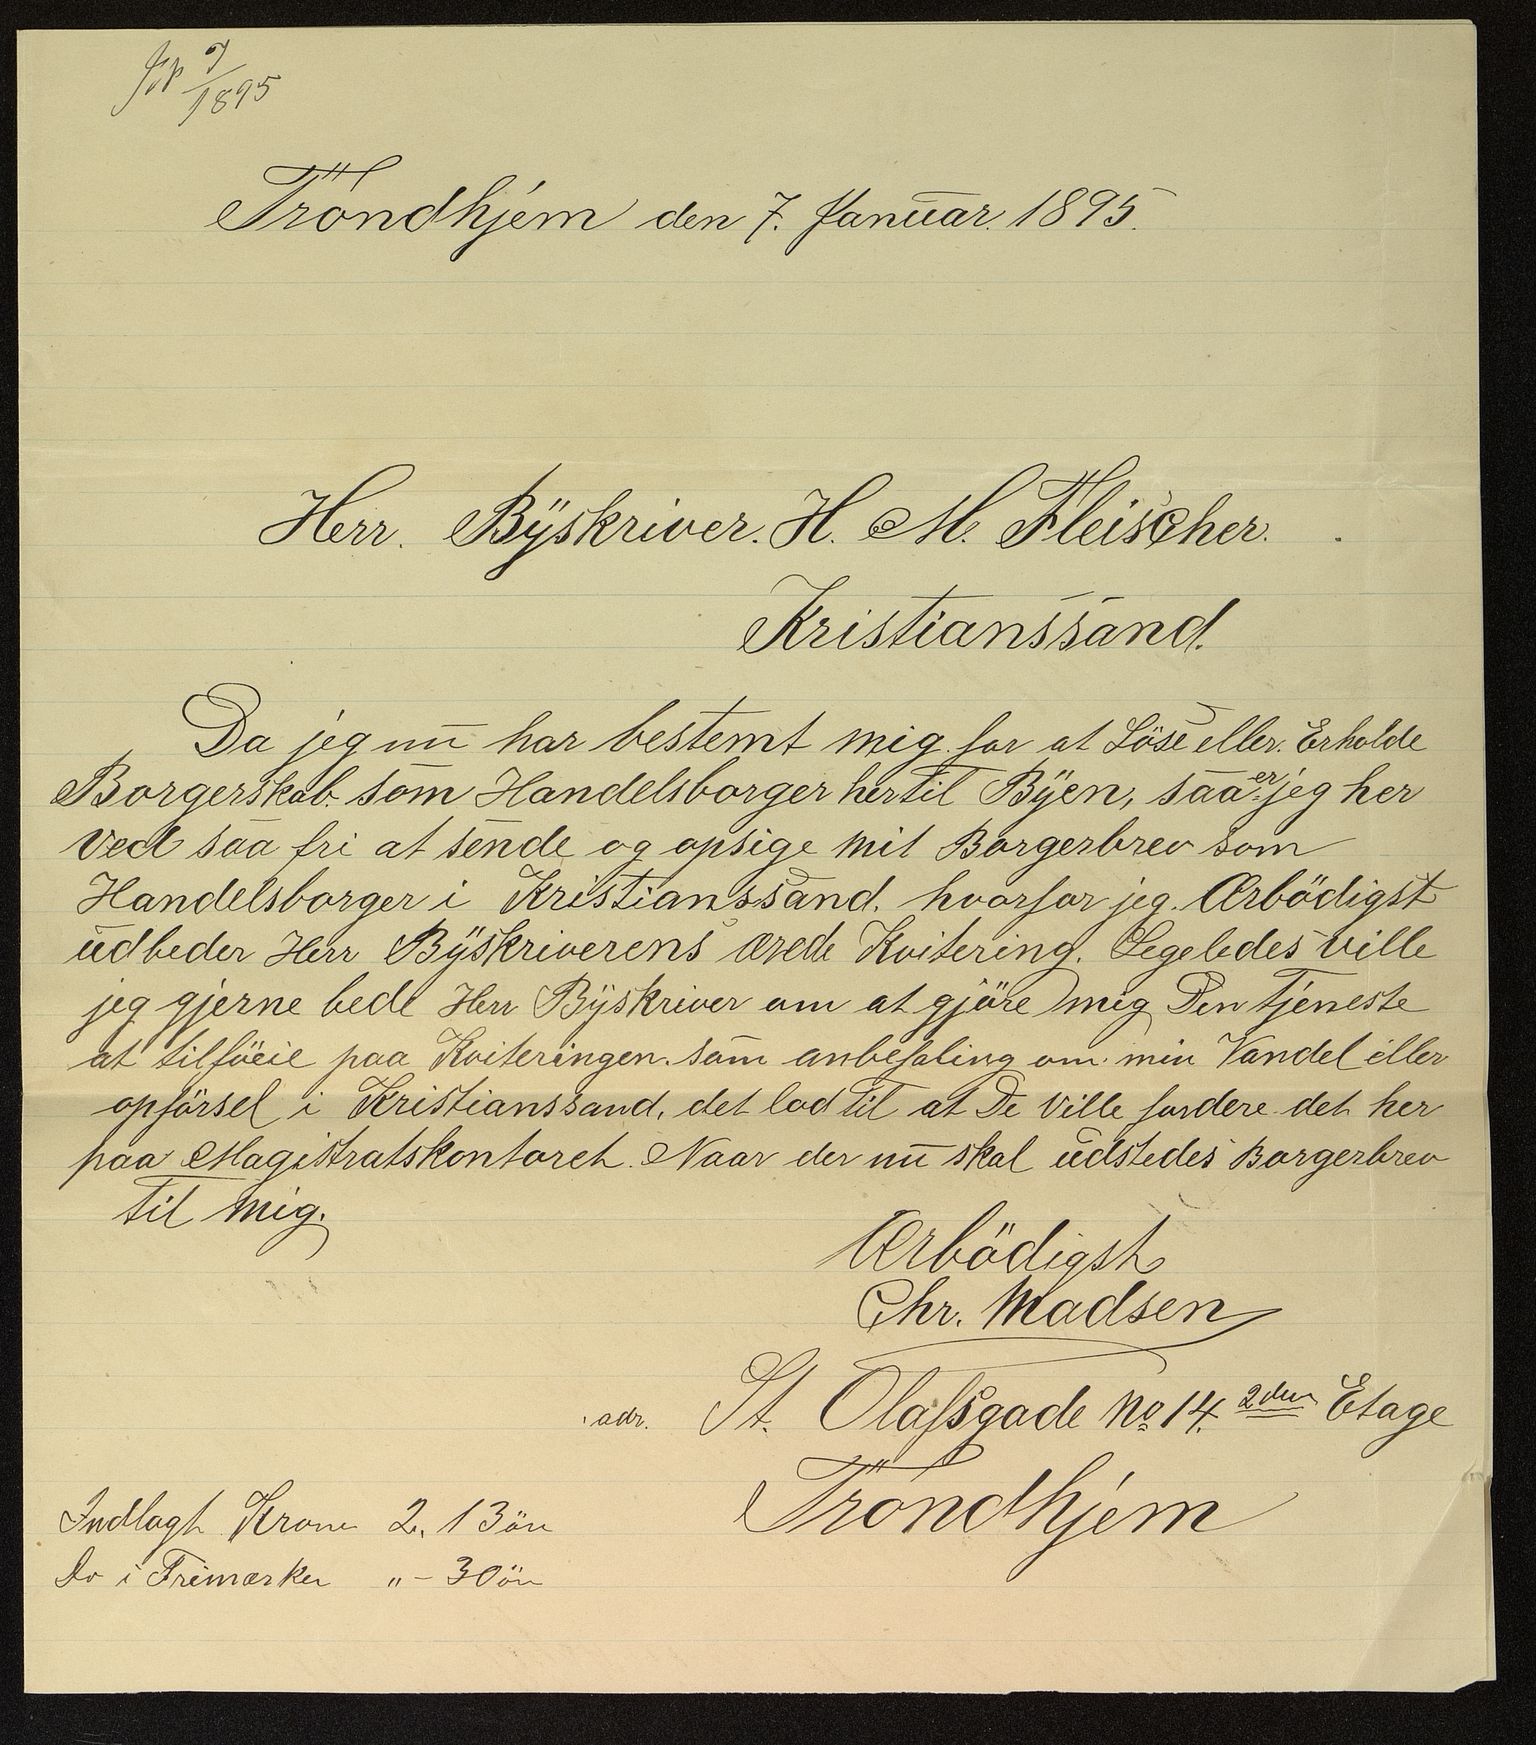 7/1895
Tröndhjem den 7. Januar. 1895.
Herr. Byskriver. H. M. Fleischer.
Kristianssand.
Da jeg nu har bestemt mig for at Löse eller Erholde
Borgerskab. som Handelsborger hertil Byen, saa er jeg her
ved saa fri at sende og opsige mit Borgerbrev som
Handelsborger i Kristianssand, hvorfor jeg. Ærbödigst
udbeder Herr Byskriverens ærede Kvitering. Legeledes ville
jeg gjerne bede Herr Byskriver om at gjöre mig Den Tjeneste
at tilföeie paa Kviteringen. som anbefaling om min Vandel eller
opförsel i Kristianssand, det lod til at De ville fordere det her
paa Magistratskontoret. Naar der nu skal udstedes Borgerbrev
til mig.
Ærbödigst
Chr. Madsen
adr. St. Olafsgade No 14. 2den Etage
Tröndhjem
Indlagt Krone 2, 13 öre
Do i Frimærker " - 30 öre